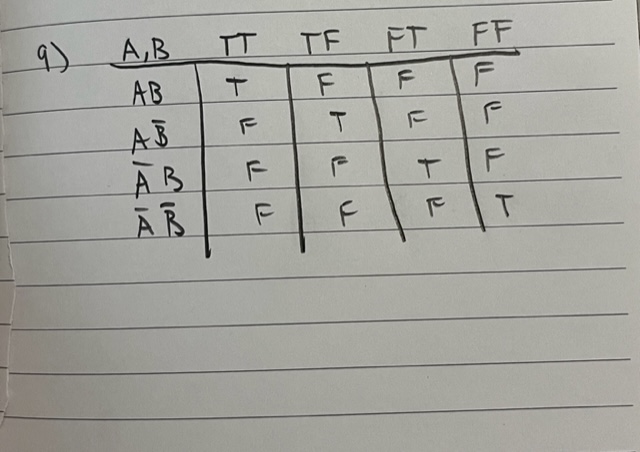 9) A,B TT TF FT FF
AB T F F F
AB̅ F T F F
A̅ B F F T F
A̅ B̅ F F F T